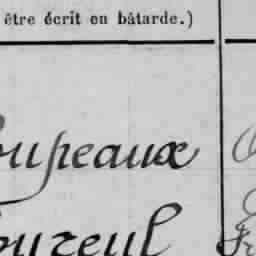 être écrit en bâtarde.)
oupeaux
oureul